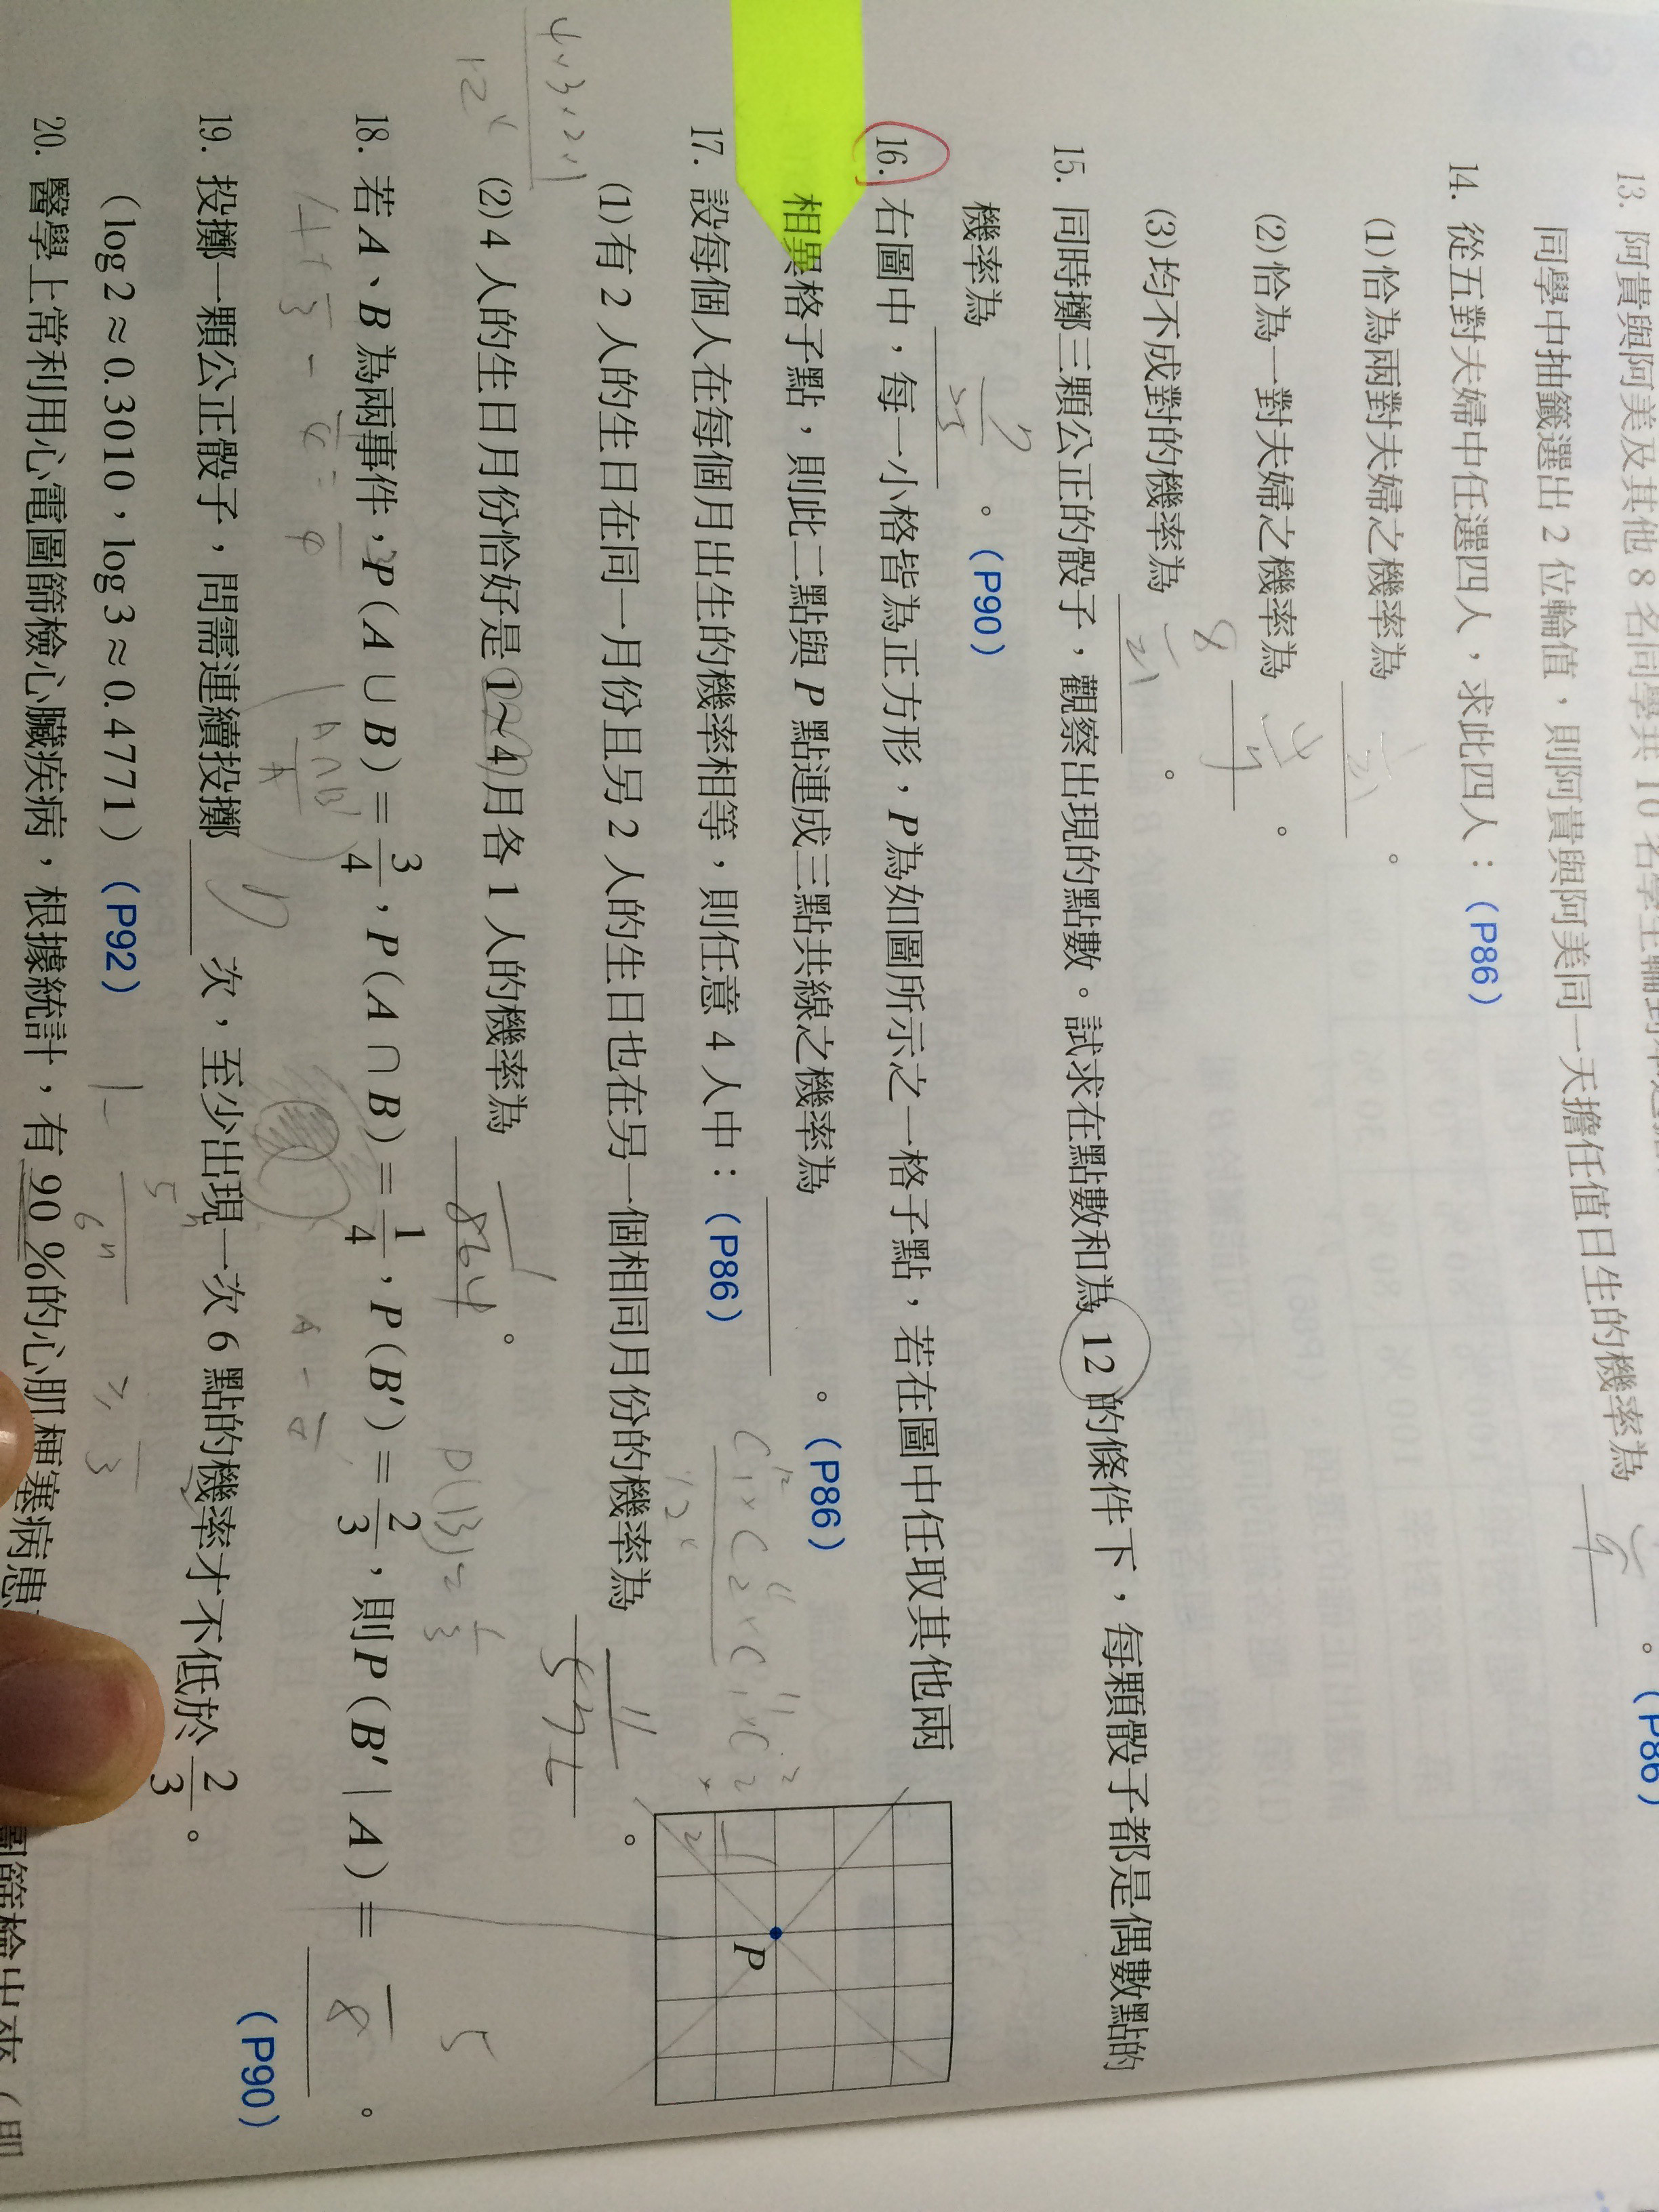 13. 阿貴與阿美及其他 8 名同學共 10 名學生輪到
同學中抽籤選出 2 位輪值，則阿貴與阿美同一天擔任值日生的機率為 。(P86)
14. 從五對夫婦中任選四人，求此四人：(P86)
(1)恰為兩對夫婦之機率為 1/21 。
(2)恰為一對夫婦之機率為 4/7 。
(3)均不成對的機率為 8/21 。
15. 同時擲三顆公正的骰子，觀察出現的點數。試求在點數和為 12 的條件下，每顆骰子都是偶數點的
機率為 7/25 。(P90)
16. 右圖中，每一小格皆為正方形，P為如圖所示之一格子點，若在圖中任取其他兩
相異格子點，則此二點與 P 點連成三點共線之機率為 。(P86)
P
17. 設每個人在每個月出生的機率相等，則任意 4 人中：(P86)
(1)有 2 人的生日在同一月份且另 2 人的生日也在另一個相同月份的機率為 11/576 。
(2) 4 人的生日月份恰好是 1~4 月各 1 人的機率為 1/864 。
4×3×2×1
18. 若 A、B 為兩事件，P(A∪B)=3/4，P(A∩B)=1/4，P(B′)=2/3，則 P(B′|A)= 。(P90)
19. 投擲一顆公正骰子，問需連續投擲 次，至少出現一次 6 點的機率才不低於 2/3 。
(log 2≈0.3010，log 3≈0.4771) (P92)
20. 醫學上常利用心電圖篩檢心臟疾病，根據統計，有 90 %的心肌梗塞病患